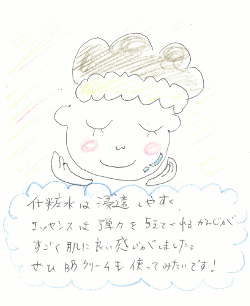 化粧水は浸透しやすく、
エッセンスは弾力を与えてくれるかんじが
すごく肌に良い感じがしました。
ぜひBBクリームも使ってみたいです!